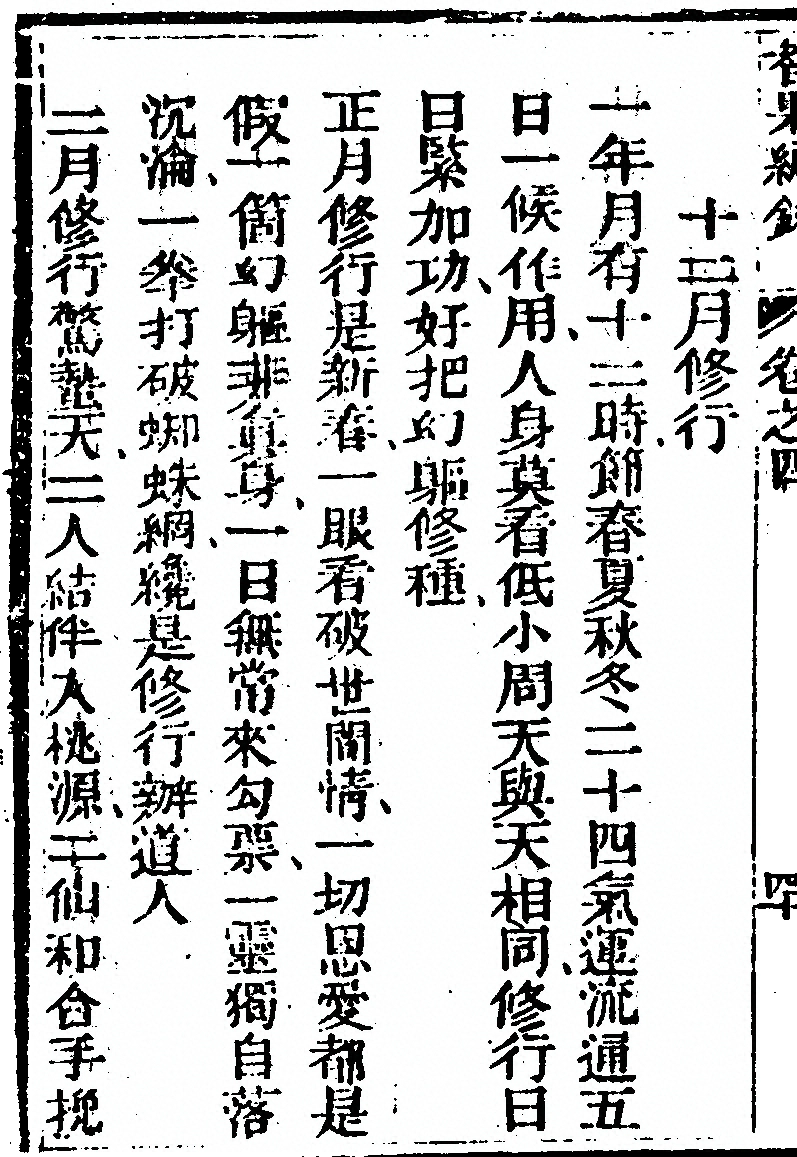 卷之四
四十
十二月修行
一年月有十二時節春夏秋冬二十四氣運流通五
日一候作用人身莫看低小周天與天相同修行日
日緊加功好把幻軀修種
正月修行是新春一眼看破世間情一切恩愛都是
假一箇幻軀非眞身一日無常來勾票一靈獨自落
沉淪一拳打破蜘蛛網纔是修行辦道人
二月修行驚蟄天二人結伴入桃源二仙和合手挽